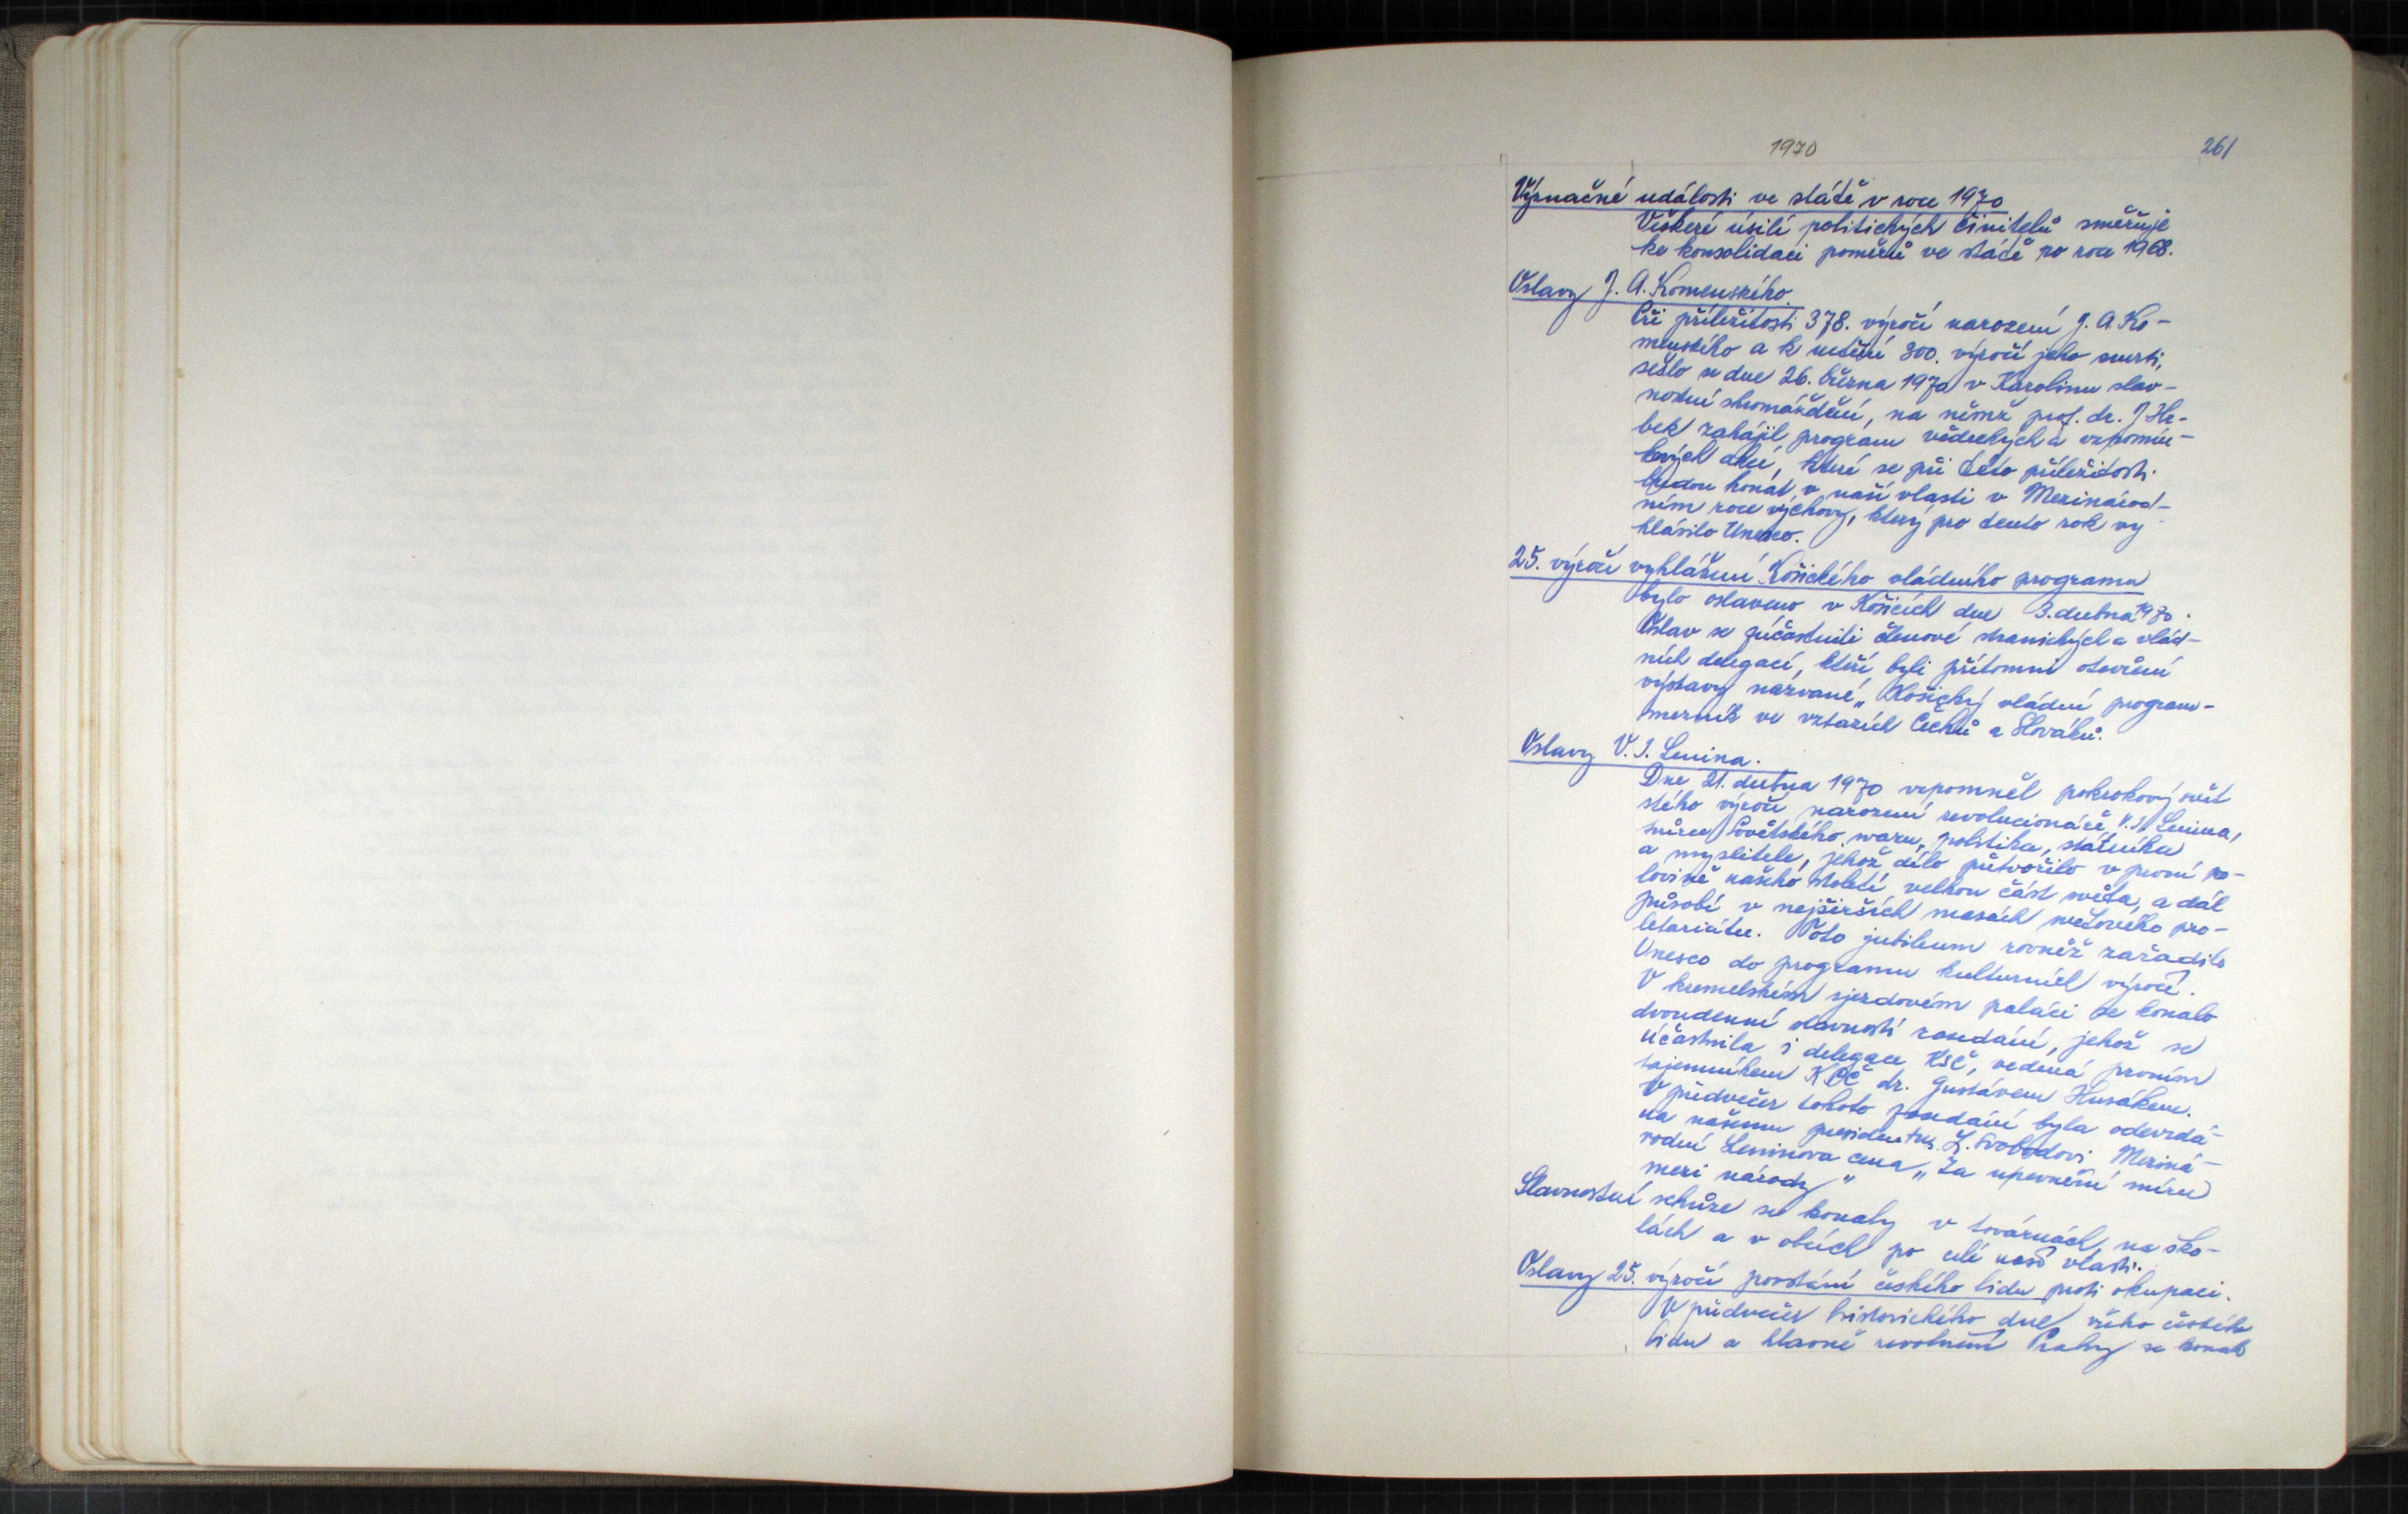 1970
261
Význačné události ve státě v roce 1970
Veškeré úsilí politických činitelů směřuje
ke konsolidaci poměrů ve státě po roce 1968.
Oslavy J. A. Komenského.
Při příležitosti 378. výročí narození J. A. Ko-
menského a k uctění 300. výročí jeho smrti,
sešlo se dne 26. března 1970 v Karolinu slav-
nostní shromáždění, na němž prof. dr. J. Hr-
bek zahájil program vědeckých a vzpomín-
kových akcí, které se při této příležitosti
budou konat v naší vlasti v Mezinárod-
ním roce výchovy, který pro tento rok vy-
hlásilo Unesco.
25. výročí vyhlášení Košického vládního programu
bylo oslaveno v Košicích dne 3. dubna 1970.
Oslav se zúčastnili členové stranických a vlád-
ních delegací, kteří byli přítomni otevření
výstavy nazvané „Košický vládní program-
mezník ve vztazích Čechů a Slováků.
Oslavy V. I. Lenina.
Dne 21. dubna 1970 vzpomněl pokrokový svět
stého výročí narození revolucionáře, V. I. Lenina,
tvůrce Sovětského svazu, politika, státníka
a myslitele, jehož dílo přetvořilo v první po-
lovině našeho století velkou část světa, a dál
působí v nejširších masách světového pro-
letariátu. Toto jubileum rovněž zařadilo
Unesco do programu kulturních výročí.
V kremelském sjezdovém paláci se konalo
dvoudenní slavnostní zasedání, jehož se
účastnila i delegace KSČ, vedená prvním
tajemníkem KSČ dr. Gustávem Husákem.
V předvečer tohoto zasedání byla odevzdá-
na našemu presidentu L. Svobodovi Meziná-
rodní Leninova cena „Za upevnění míru
mezi národy"
Slavnostní schůze se konaly v továrnách, na ško-
lách a v obcích po celé naší vlasti.
Oslavy 25. výročí povstání českého lidu proti okupaci.
V předvečer historického dne všeho českého
lidu a hlavně revoluční Prahy se konalo